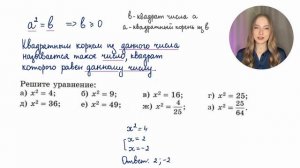 a² = b ⟹ b ≥ 0
b - квадрат числа a
a - квадратный корень из b
Квадратным корнем из данного числа
называется такое число, квадрат
которого равен данному числу.
Решите уравнение:
а) x² = 4; б) x² = 9; в) x² = 16; г) x² = 25;
д) x² = 36; е) x² = 49; ж) x² = 4/25; з) x² = 25/64.
x² = 4
x = 2
x = -2
Ответ: 2; -2